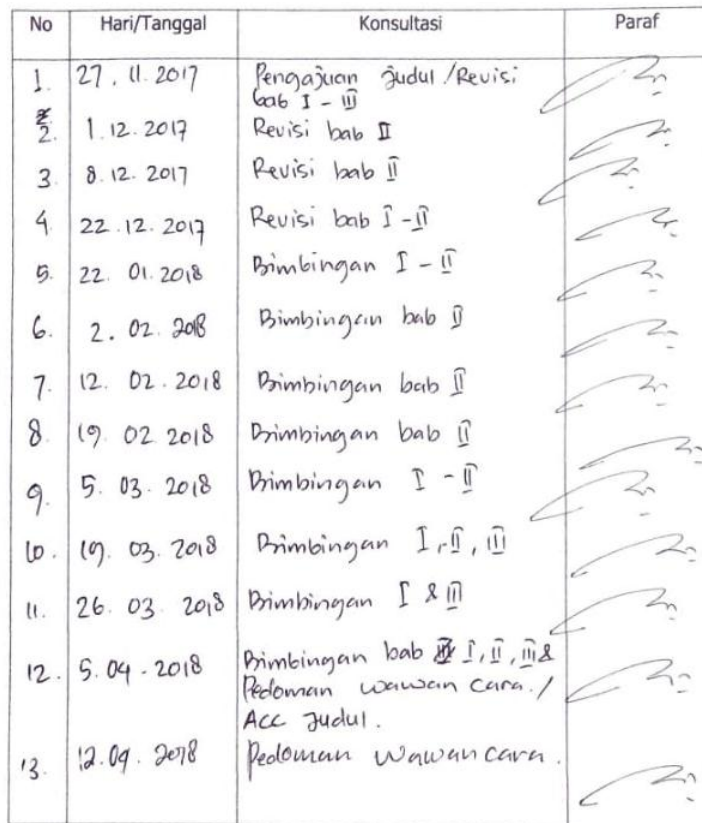 No Hari/Tanggal Konsultasi Paraf
1. 27. 11. 2017 Pengajuan Judul /Revisi
bab I - III
2. 1. 12. 2017 Revisi bab II
3. 8. 12. 2017 Revisi bab II
4. 22. 12. 2017 Revisi bab I - II
5. 22. 01. 2018 Bimbingan I - II
6. 2. 02. 2018 Bimbingan bab II
7. 12. 02. 2018 Bimbingan bab II
8. 19. 02 2018 Bimbingan bab II
9. 5. 03. 2018 Bimbingan I - II
10. 19. 03. 2018 Bimbingan I, II, III
11. 26. 03. 2018 Bimbingan I & III
12. 5. 04 - 2018 Bimbingan bab I, II, III &
Pedoman wawan cara. /
Acc Judul.
13. 12. 04. 2018 Pedoman Wawan cara.